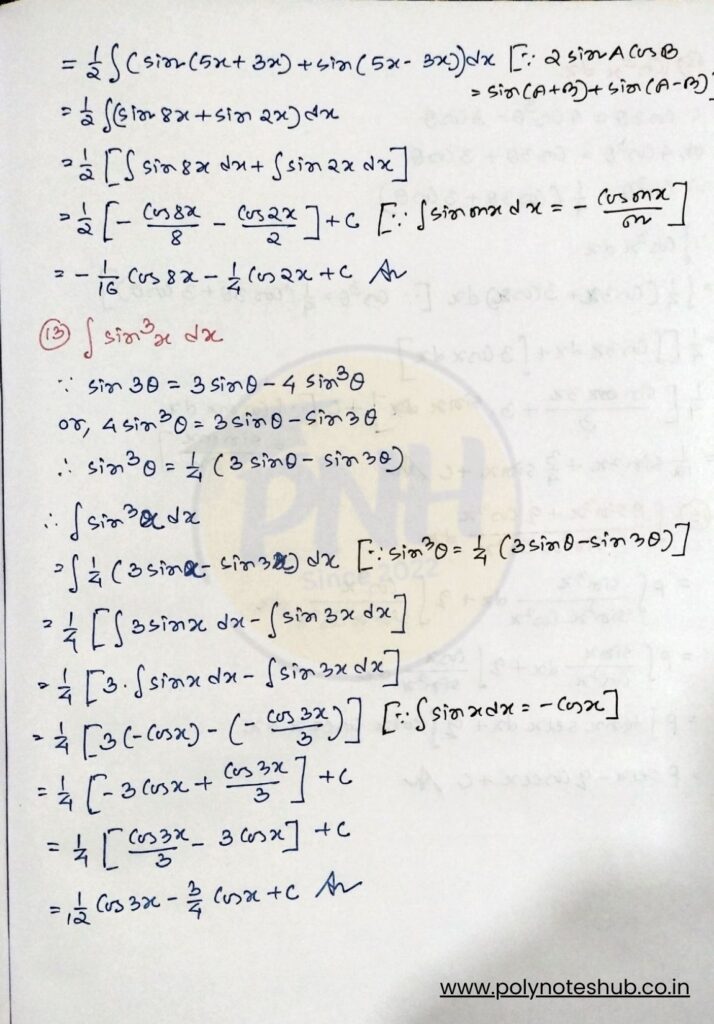 = 1/2 ∫(sin(5x+3x)+sin(5x-3x))dx [∵ 2 sinA cosB
= sin(A+B)+sin(A-B)]
= 1/2 ∫(sin 8x + sin 2x) dx
= 1/2 [∫ sin 8x dx + ∫ sin 2x dx]
= 1/2 [- cos8x/8 - cos2x/2] + c [∵ ∫ sin mx dx = - cosmx/m]
= - 1/16 cos 8x - 1/4 cos 2x + c Ans
(13) ∫ sin³x dx
∵ sin 3θ = 3 sinθ - 4 sin³θ
or, 4 sin³θ = 3 sinθ - sin 3θ
∴ sin³θ = 1/4 (3 sinθ - sin 3θ)
∴ ∫ sin³x dx
= ∫ 1/4 (3 sinx - sin 3x) dx [∵ sin³θ = 1/4 (3 sinθ - sin 3θ)]
= 1/4 [∫ 3 sinx dx - ∫ sin 3x dx]
= 1/4 [3 · ∫ sinx dx - ∫ sin 3x dx]
= 1/4 [3 (-cosx) - (- cos 3x/3)] [∵ ∫ sin x dx = - cosx]
= 1/4 [- 3 cosx + cos3x/3] + c
= 1/4 [cos3x/3 - 3 cosx] + c
= 1/12 cos 3x - 3/4 cosx + c Ans
PNH
Since 2022
www.polynoteshub.co.in